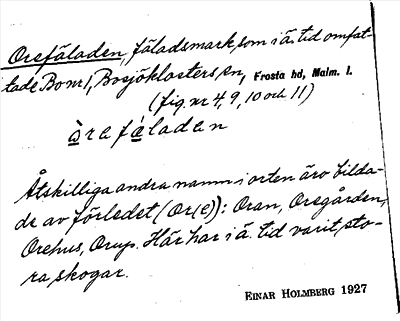 Orefäladen, fäladsmark, som i ä. tid omfat-
tade Bonr 1, Bosjöklosters sn, Frosta hd, Malm. l.
(fig. nr 4, 9, 10 och 11)
òrefáladen
Åtskilliga andra namn i orten äro bilda-
de av förledet (Or(e)): Oran, Oregården,
Orehus, Orup. Här har i ä. tid varit sto-
ra skogar.
EINAR HOLMBERG 1927